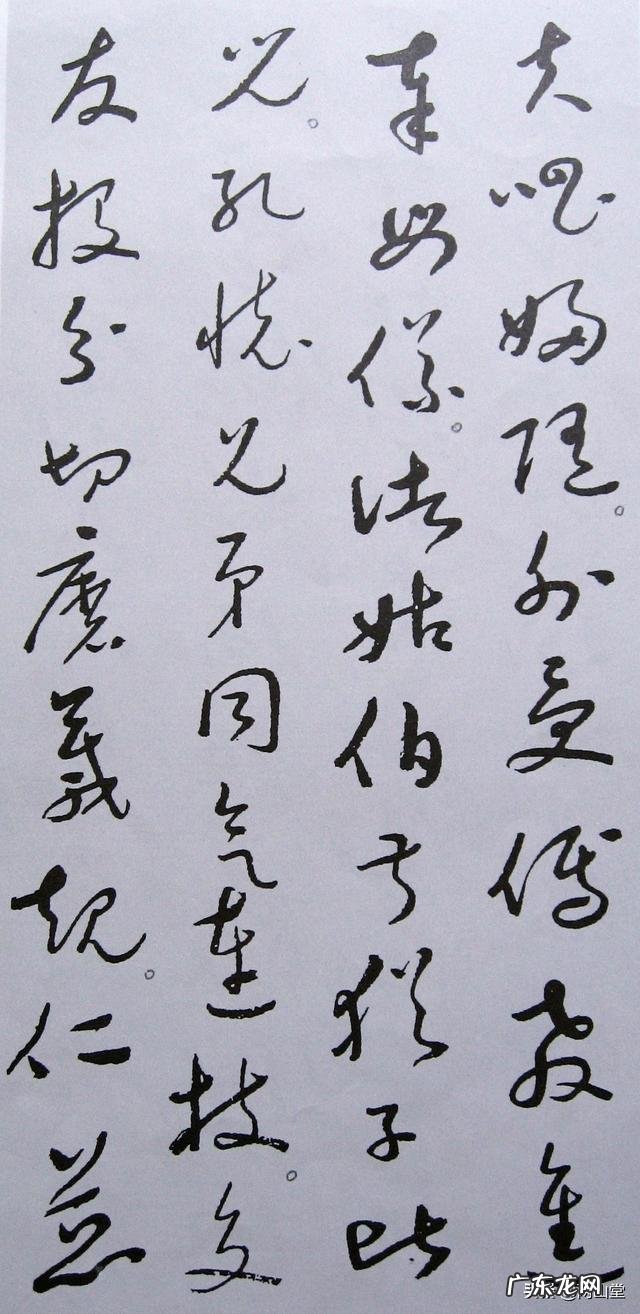 夫唱婦隨。外受傅教
奉母儀。諸姑伯叔猶子比
兒。孔懷兄弟同氣連枝。交
友投分切磨箴規。仁慈
广东龙网